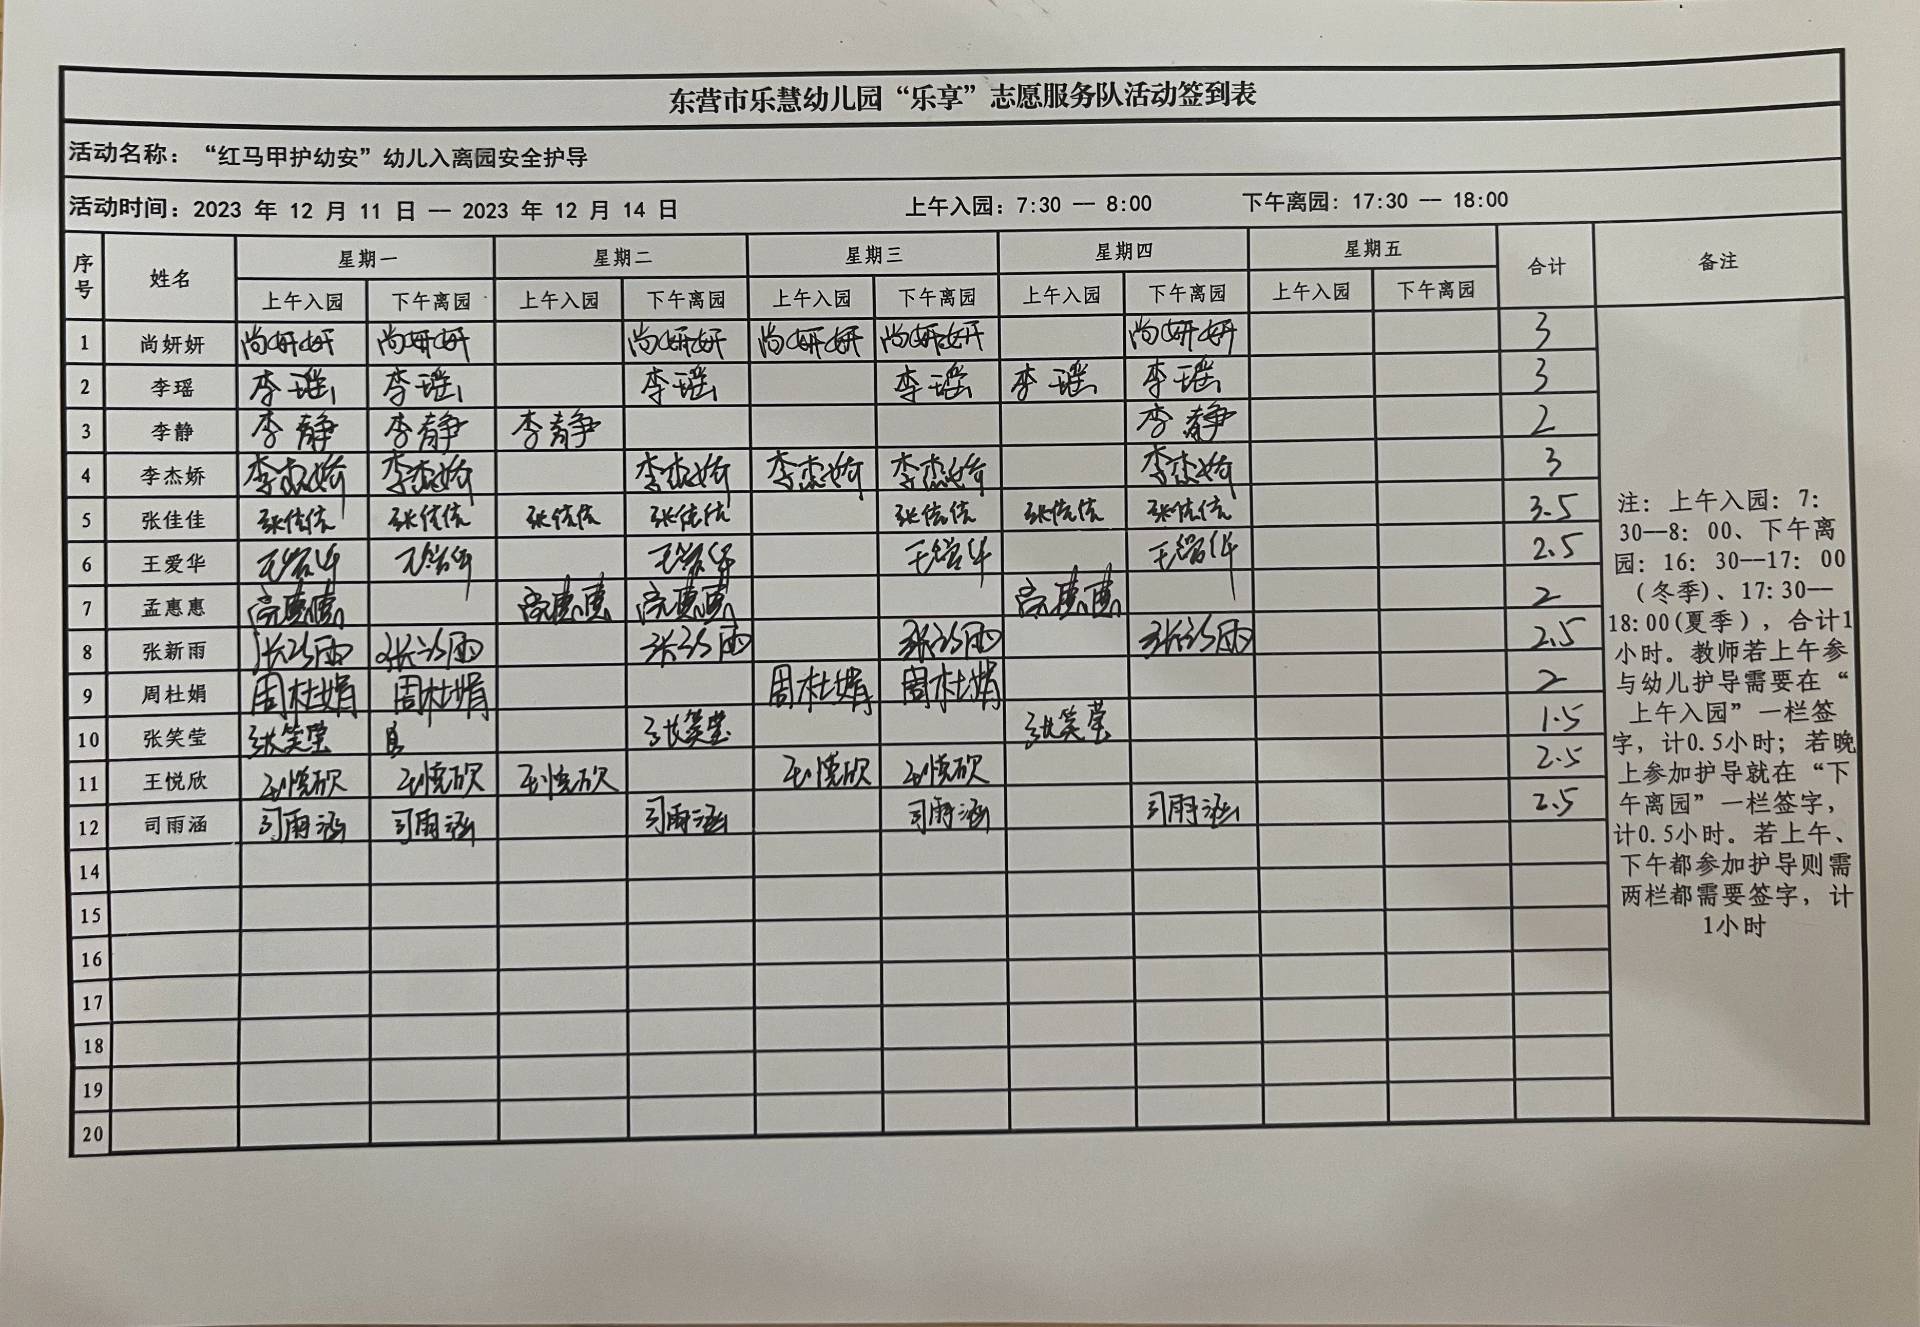 东营市乐慧幼儿园“乐享”志愿服务队活动签到表
活动名称：“红马甲护幼安”幼儿入离园安全护导
活动时间：2023 年 12 月 11 日 —— 2023 年 12 月 14 日 上午入园：7:30 —— 8:00 下午离园：17:30 —— 18:00
序号 姓名 星期一 星期二 星期三 星期四 星期五 合计 备注
上午入园 下午离园 上午入园 下午离园 上午入园 下午离园 上午入园 下午离园 上午入园 下午离园
1 尚妍妍 尚妍妍 尚妍妍 尚妍妍 尚妍妍 尚妍妍 尚妍妍 3
2 李瑶 李瑶 李瑶 李瑶 李瑶 李瑶 李瑶 3
3 李静 李静 李静 李静 李静 2
4 李杰娇 李杰娇 李杰娇 李杰娇 李杰娇 李杰娇 李杰娇 3
5 张佳佳 张佳佳 张佳佳 张佳佳 张佳佳 张佳佳 张佳佳 张佳佳 3.5
6 王爱华 王爱华 王爱华 王爱华 王爱华 王爱华 2.5
7 孟惠惠 孟惠惠 孟惠惠 孟惠惠 孟惠惠 2
8 张新雨 张新雨 张新雨 张新雨 张新雨 张新雨 2.5
9 周杜娟 周杜娟 周杜娟 周杜娟 周杜娟 2
10 张笑莹 张笑莹 张笑莹 张笑莹 1.5
11 王悦欣 王悦欣 王悦欣 王悦欣 王悦欣 王悦欣 2.5
12 司雨涵 司雨涵 司雨涵 司雨涵 司雨涵 司雨涵 2.5
14
15
16
17
18
19
20
注：上午入园：7：
30——8：00、下午离
园：16：30——17：00
（冬季）、17:30——
18:00(夏季），合计1
小时。教师若上午参
与幼儿护导需要在“
上午入园”一栏签
字，计0.5小时；若晚
上参加护导就在“下
午离园”一栏签字，
计0.5小时。若上午、
下午都参加护导则需
两栏都需要签字，计
1小时